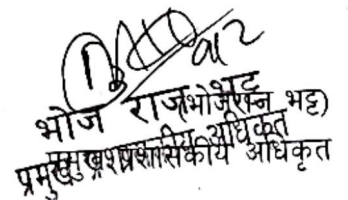 भोज राज भट्ट
(भोजराज भट्ट)
प्रमुख प्रशासकीय अधिकृत
प्रमुख प्रशासकीय अधिकृत